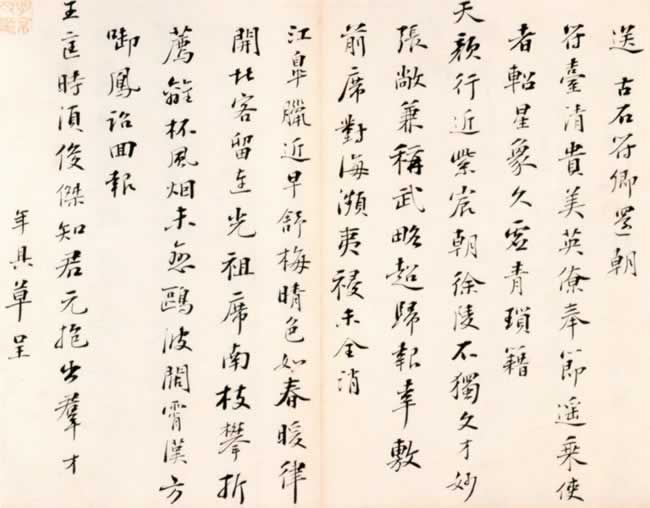 送 古石符卿還朝
符臺清貴美英僚奉節遥乗使
者軺星象久虚青瑣籍
天顔行近紫宸朝徐陵不獨文才妙
張敞兼稱武略超歸報幸敷
前席對海瀕夷祲未全消
江臯臘近早舒梅晴色如春暖律
開北客留連光祖席南枝攀折
薦離杯風烟未逺鷗波闊霄漢方
啣鳳詔回報
主匡時湏俊傑知君元抱出羣才
年具草呈